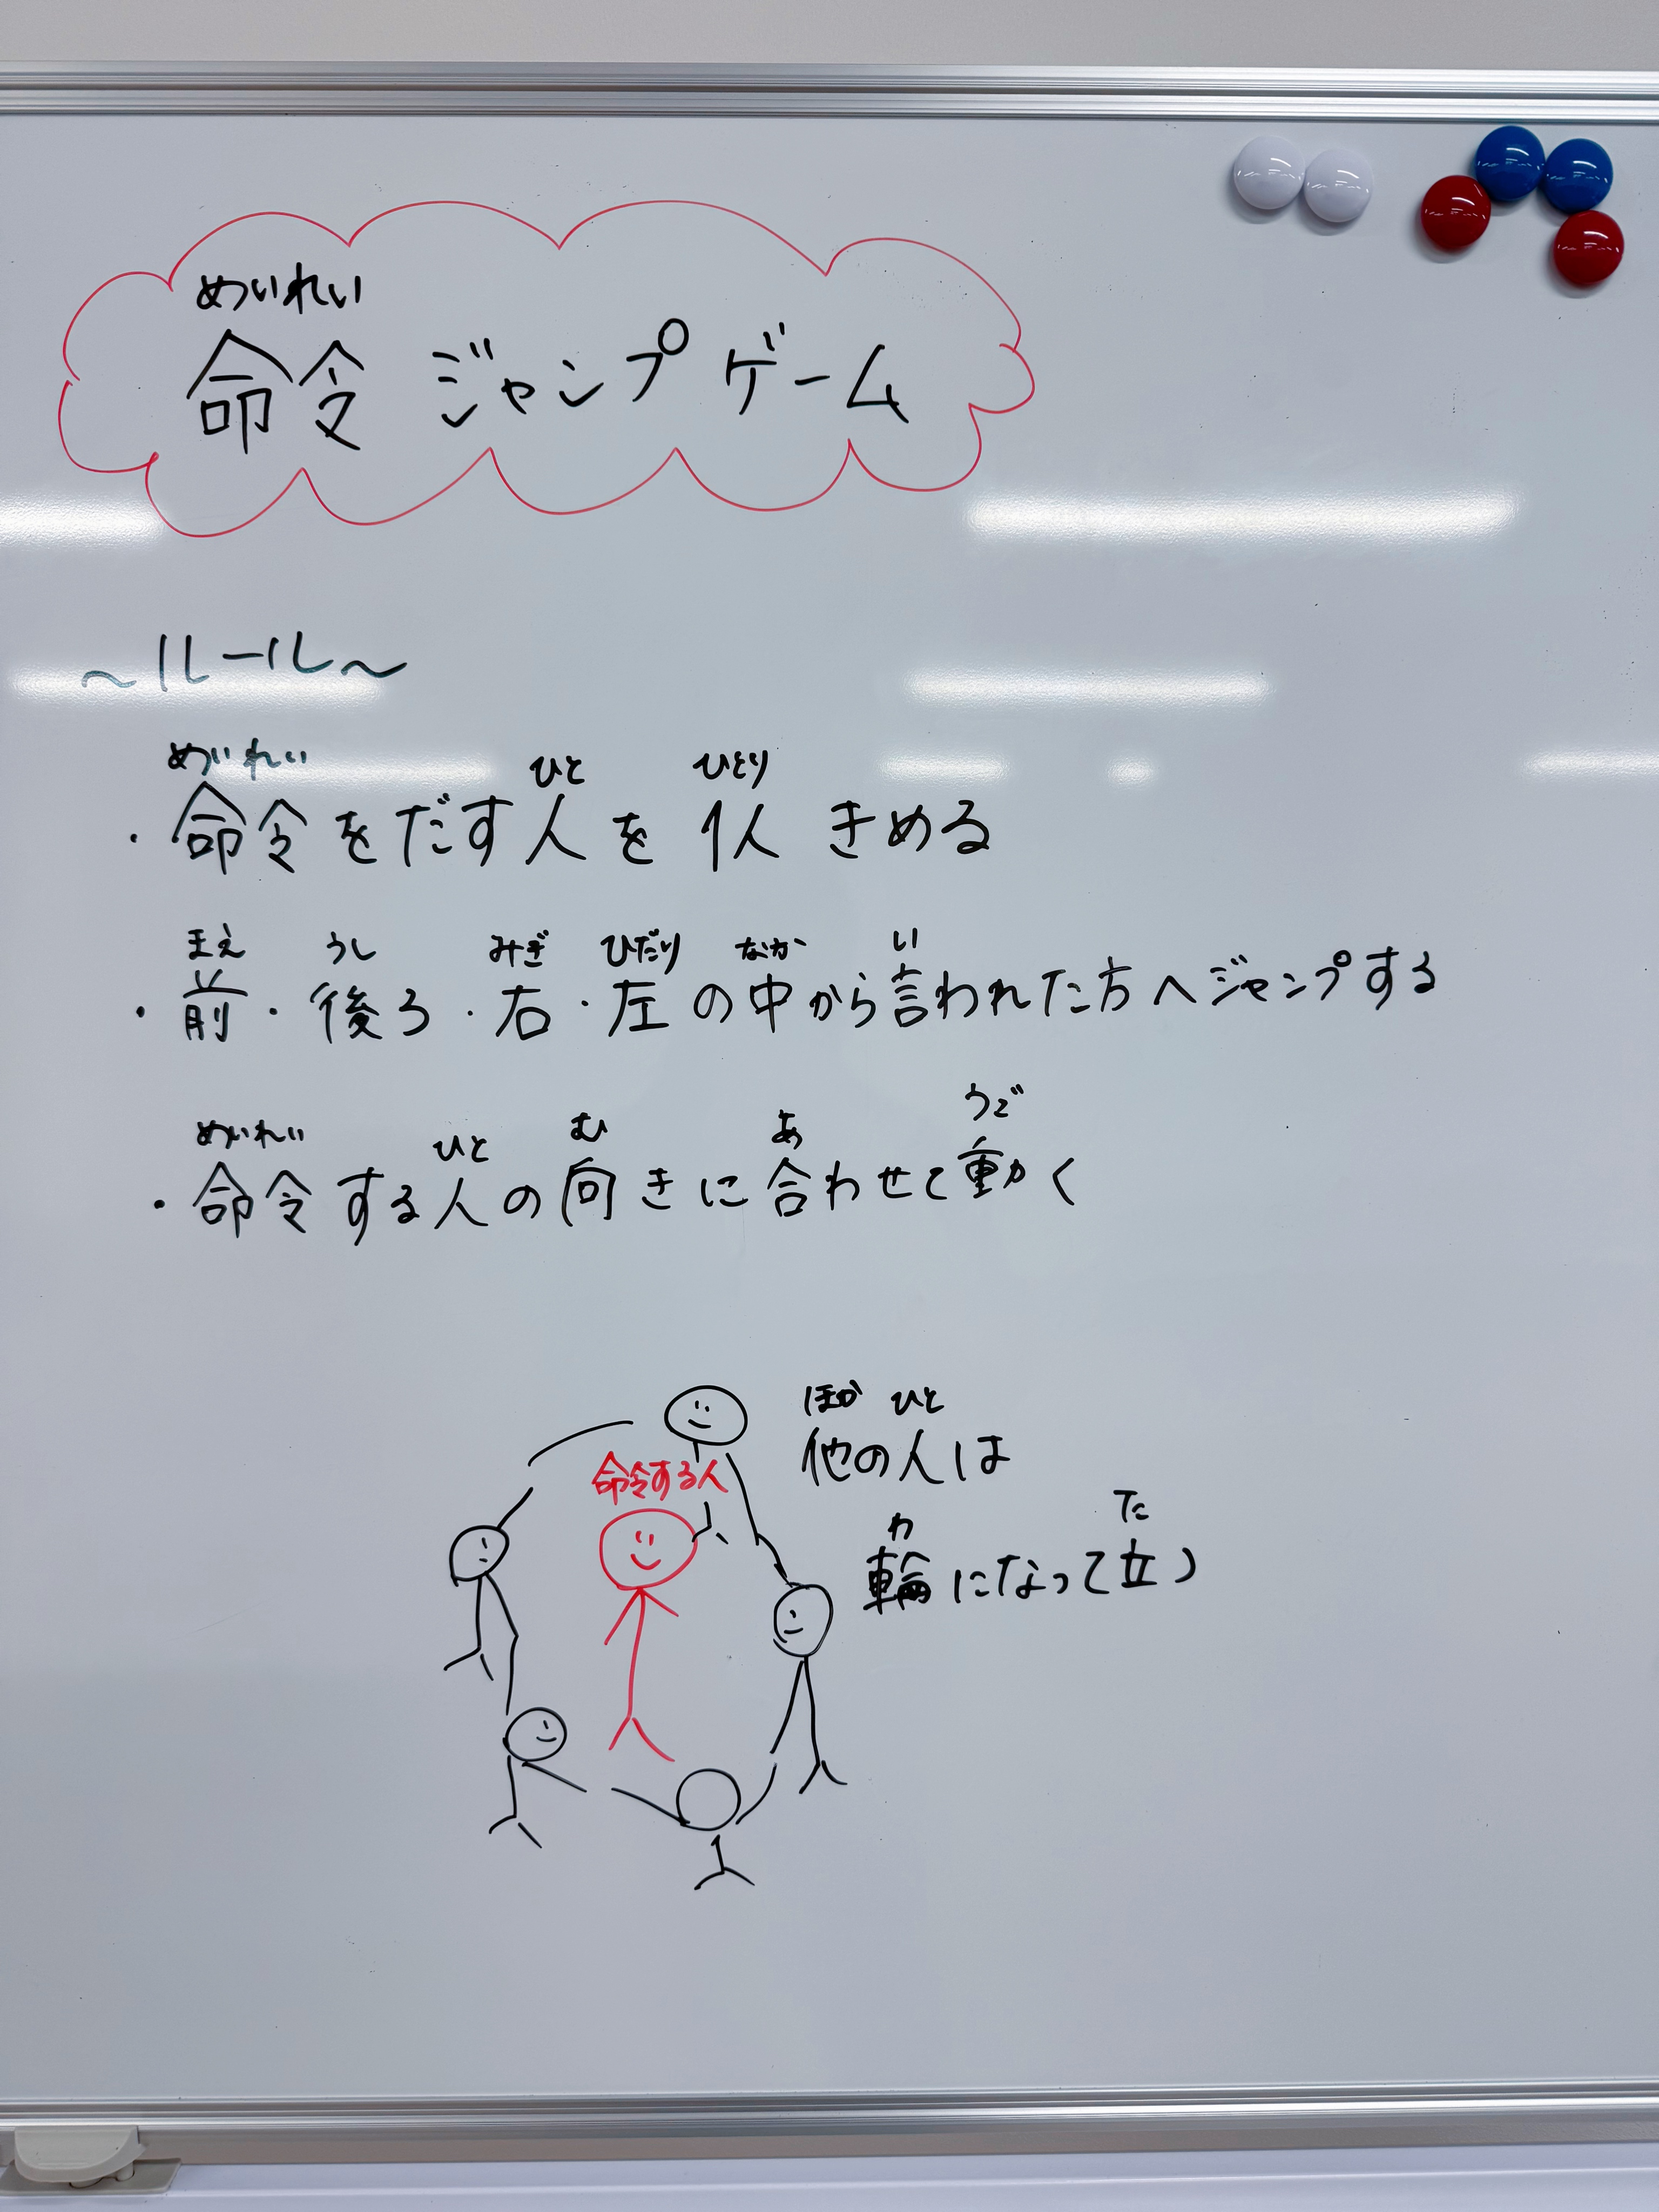 めいれい
命令 ジャンプゲーム
～ルール～
めいれい ひと ひとり
・命令をだす人を1人 きめる
まえ うし みぎ ひだり なか い
・前・後ろ・右・左の中から言われた方へジャンプする
めいれい ひと む あ うご
・命令する人の向きに合わせて動く
ほか ひと
他の人は
わ た
輪になって立つ
命令する人